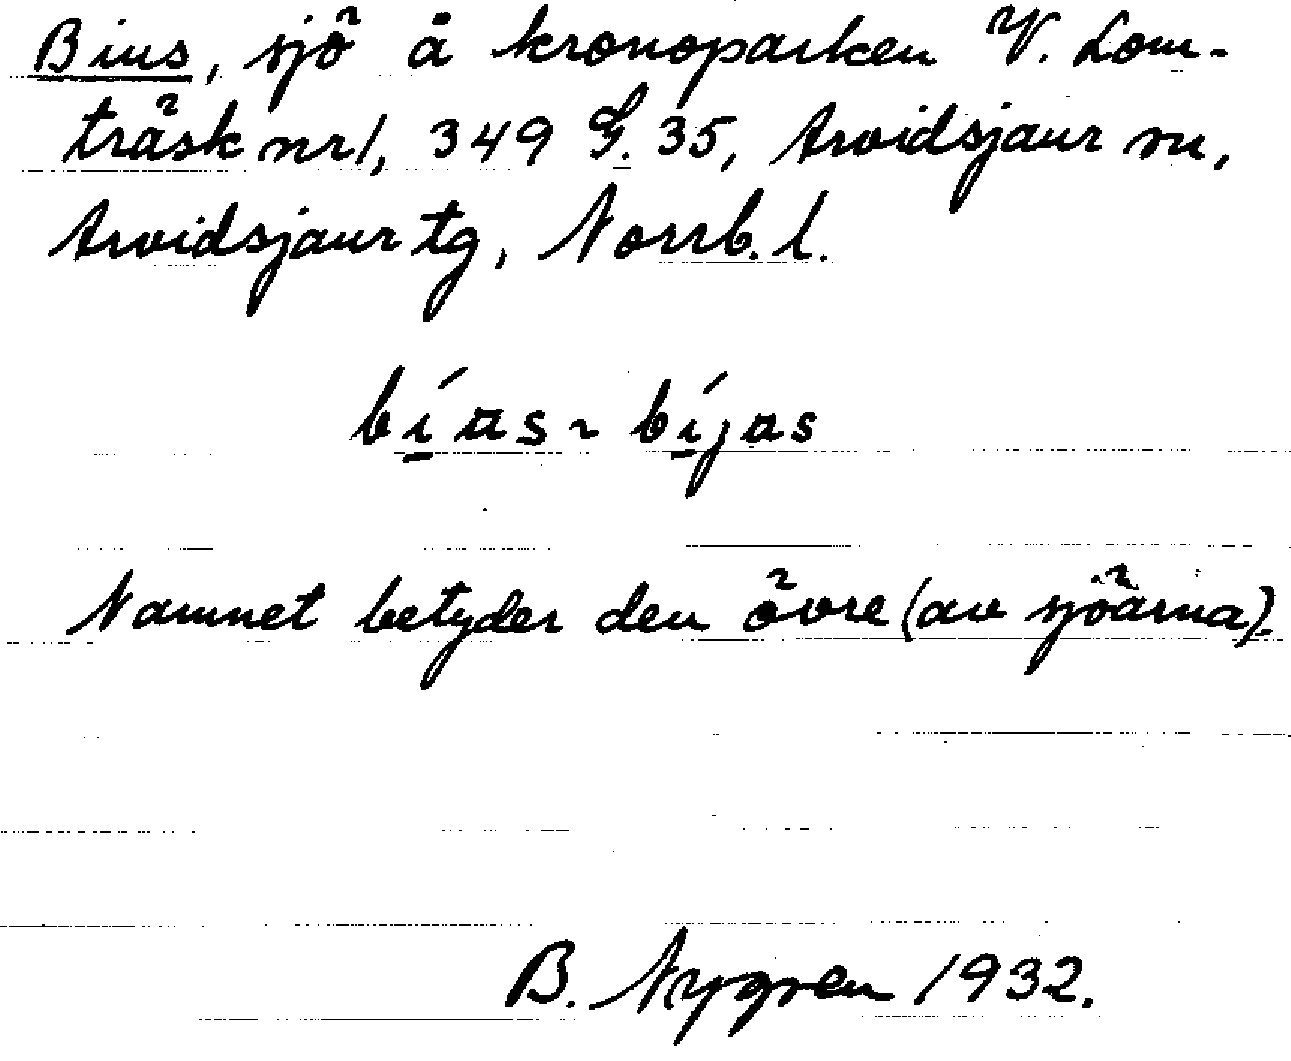 Bius, sjö å kronoparken V. Lom-
träsk nr 1, 349 G. 35, Arvidsjaur sn,
Arvidsjaur tg, Norrb. l.
bí̱as ~ bí̱jas
Namnet betyder den övre (av sjöarna).
B. Nygren 1932.